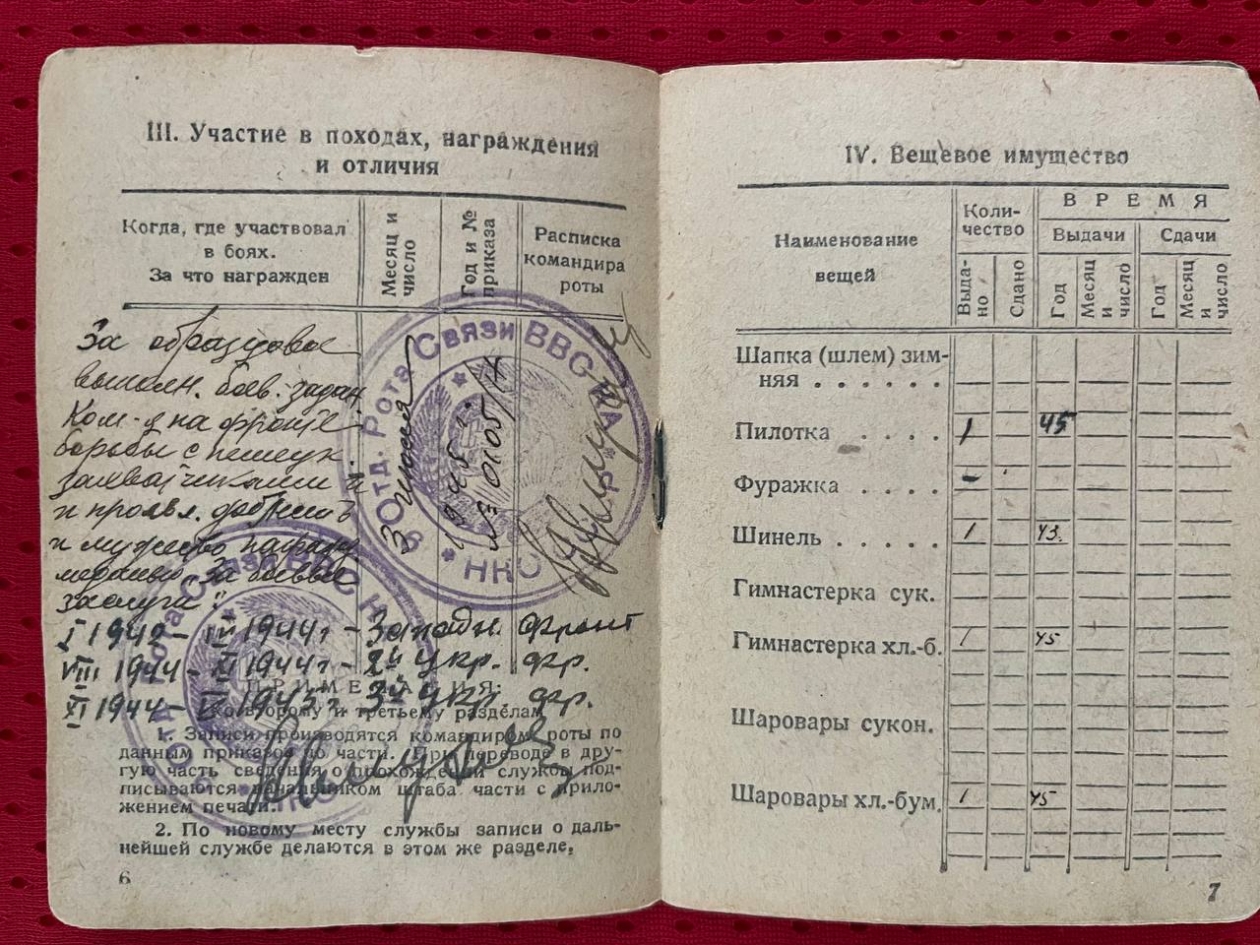 III. Участие в походах, награждения
и отличия
Когда, где участвовал
в боях.
За что награжден
Месяц и
число
Год и №
приказа
Расписка
командира
роты
За образцовое
выполн. боев. задан
Ком-я на фронте
борьбы с немецк.
захватчиками и
и проявл. доблесть
и мужество награжд
медалью "За боевые
заслуги".
3 июня
1945 г.
№ 0105/н
Отд. Рота Связи ВВС КА
НКО
I 1942 - 1944 г - Западн. фронт
VIII 1944 - XI 1944 г - 2й Укр. фр.
XI 1944 - 1945 г. 3й Укр. фр.
Рота Связи ВВС
НКО
ПРИМЕЧАНИЯ:
Ко второму и третьему разделам
1. Записи производятся командиром роты по
данным приказов по части. При переводе в дру-
гую часть сведения о прохождении службы под-
писываются начальником штаба части с прило-
жением печати.
2. По новому месту службы записи о даль-
нейшей службе делаются в этом же разделе,
6
IV. Вещевое имущество
Наименование
вещей
Коли-
чество
ВРЕМЯ
Выдачи
Сдачи
Выда-
но
Сдано
Год
Месяц
и
число
Год
Месяц
и
число
Шапка (шлем) зим-
няя . . . . . .
Пилотка . . . . 1 45
Фуражка . . . . -
Шинель . . . . . 1 43.
Гимнастерка сук.
Гимнастерка хл.-б. 1 45
Шаровары сукон.
Шаровары хл.-бум. 1 45
7